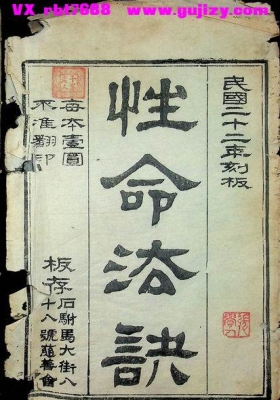 VX_pbf7688 www.gujizy.com
民國二十二年刻板
性命法訣
每本壹圓
不准翻印
板存石駙馬大街八
十八號慈善會